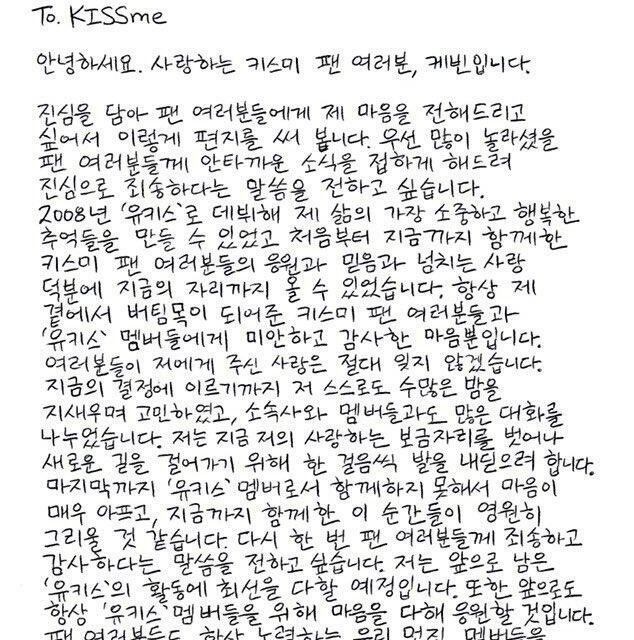 To. KISSme
안녕하세요. 사랑하는 키스미 팬 여러분, 케빈입니다.
진심을 담아 팬 여러분들에게 제 마음을 전해드리고
싶어서 이렇게 편지를 써 봅니다. 우선 많이 놀라셨을
팬 여러분들께 안타까운 소식을 접하게 해드려
진심으로 죄송하다는 말씀을 전하고 싶습니다.
2008년 '유키스'로 데뷔해 제 삶의 가장 소중하고 행복한
추억들을 만들 수 있었고 처음부터 지금까지 함께한
키스미 팬 여러분들의 응원과 믿음과 넘치는 사랑
덕분에 지금의 자리까지 올 수 있었습니다. 항상 제
곁에서 버팀목이 되어준 키스미 팬 여러분들과
'유키스' 멤버들에게 미안하고 감사한 마음뿐입니다.
여러분들이 저에게 주신 사랑은 절대 잊지 않겠습니다.
지금의 결정에 이르기까지 저 스스로도 수많은 밤을
지새우며 고민하였고, 소속사와 멤버들과도 많은 대화를
나누었습니다. 저는 지금 저의 사랑하는 보금자리를 벗어나
새로운 길을 걸어가기 위해 한 걸음씩 발을 내딛으려 합니다.
마지막까지 '유키스' 멤버로서 함께하지 못해서 마음이
매우 아프고, 지금까지 함께한 이 순간들이 영원히
그리울 것 같습니다. 다시 한 번 팬 여러분들께 죄송하고
감사하다는 말씀을 전하고 싶습니다. 저는 앞으로 남은
'유키스'의 활동에 최선을 다할 예정입니다. 또한 앞으로도
항상 '유키스' 멤버들을 위해 마음을 다해 응원할 것입니다.
팬 여러분들도 항상 노력하는 우리 멋진 멤버들을